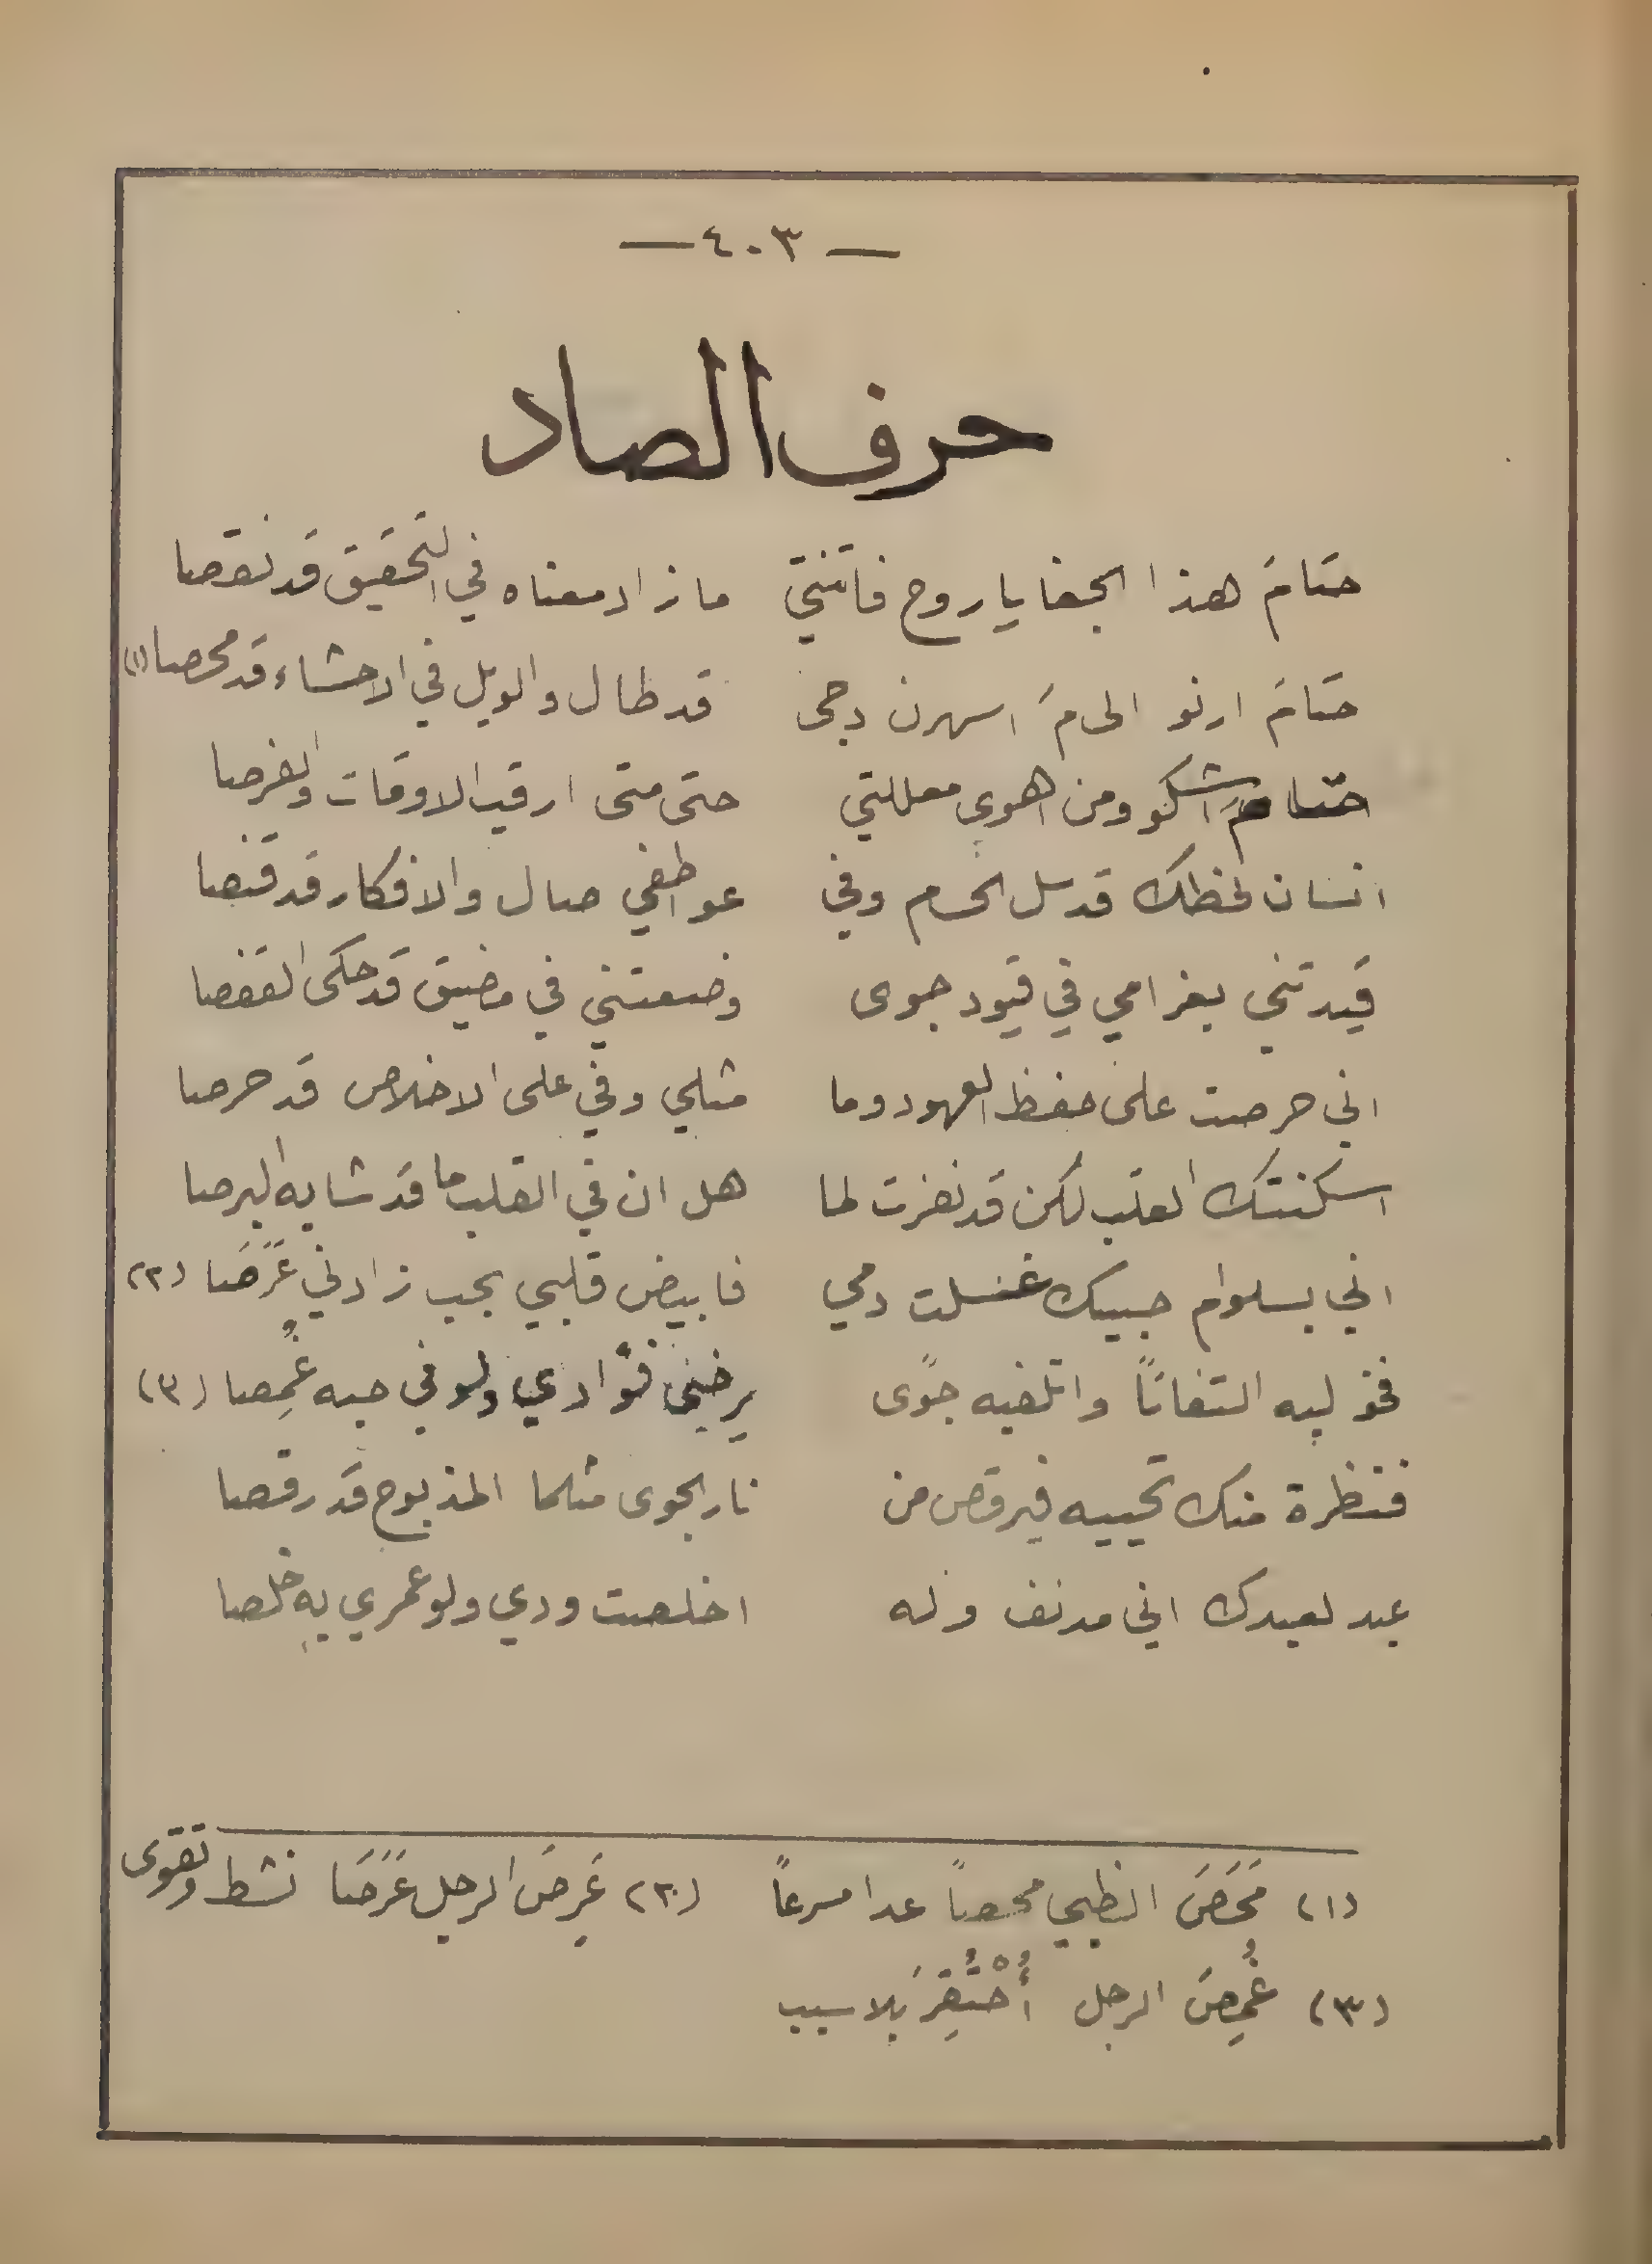 — ٤٠٣ —
حرف الصاد
حتامَ هذا الجفا يا روح فاتنتي ما زاد معناه في التحقيق قد نقصا
حتامَ ارنو الى مَ اسهرن دجى قد طال والويل في الاحشاء قد محصا (١)
حتامَ اشكو ومن اهوى معللتي حتى متى ارقب الاوقات والفرصا
انسان لحظك قد سل الحسام وفي عواطفي صال والافكار قد قنصا
قيدتني بغرامي في قيود جوى وضعتني في مضيق قد حكى القفصا
اني حرصت على حفظ العهود وما مثلي وفي على الاخلاص قد حرصا
اسكنتك القلب لكن قد نفرت لما هل ان في القلب ما قد شابه البرصا
اني بسلوام حبيك غسلت دمي فابيض قلبي بحب زادني عَرَصَا (٢)
فخوليه التفاتاً واتلفيه جوًى يرضى فؤادي ولو في حبه غُمِصا (٣)
فنظرة منك تحييه فيرقص من نار الجوى مثلما المذبوح قد رقصا
عبد لعبدك اني مدنف وله اخلصت ودي ولو عمري به خلصا
(١) مَحَصَ الظبي محصاً عدا مسرعاً (٢) عَرِصَ الرجل عَرَصَا نشط وتقوى
(٣) غُمِصَ الرجل أُحْتُقِرَ بلا سبب